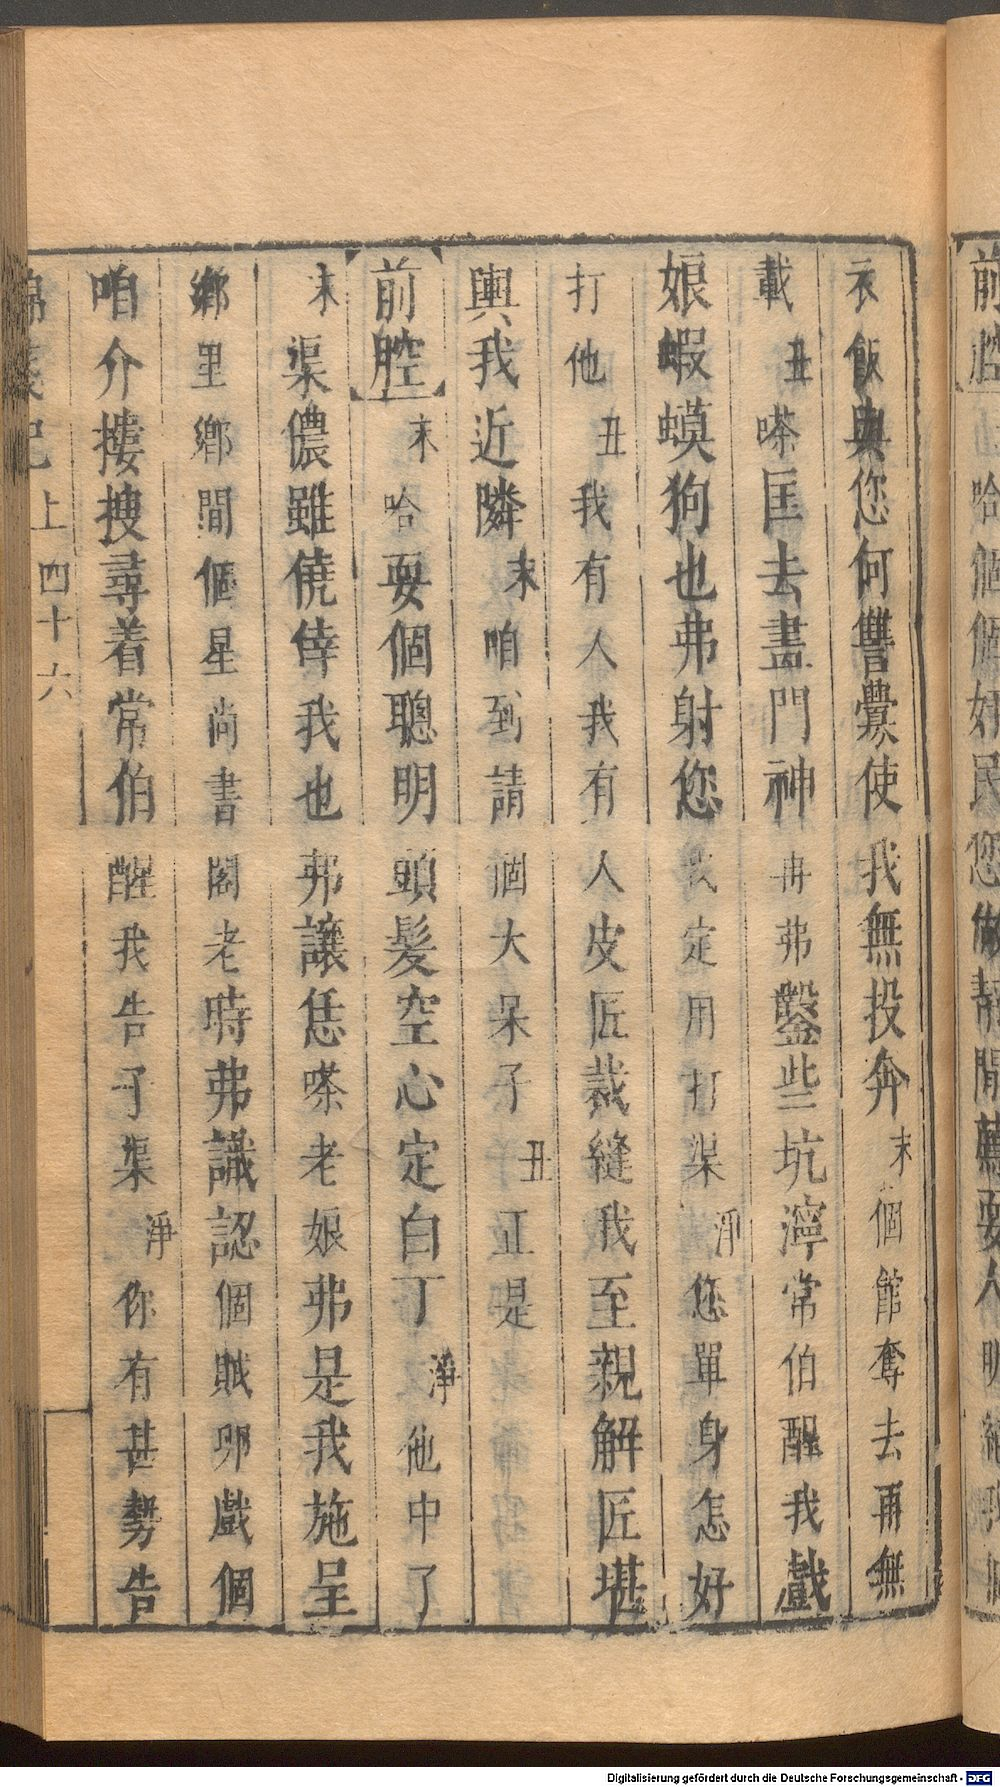 前腔
哈個個奸民您做幫閒
衣飯與您何讐釁使我無投奔末個館奪去再無
載丑嗏匡去盡門神冉弗鑿些坑濘常伯醒我戲
娘蝦蟆狗也弗射您我定用打渠淨您單身怎好
打他丑我有人我有人皮匠裁縫我至親解匠堪
輿我近隣末咱到請個大呆子丑正是
前腔末哈耍個聰明頭髮空心定白丁淨他中了
末渠儂雖僥倖我也弗讓恁嗏老娘弗是我施呈
鄉里鄉間個星尚書閣老時弗識認個賊卵戲個
咱介摟捜尋着常伯醒我告了渠淨你有甚勢告
錦箋記 上 四十六
Digitalisierung gefördert durch die Deutsche Forschungsgemeinschaft - DFG